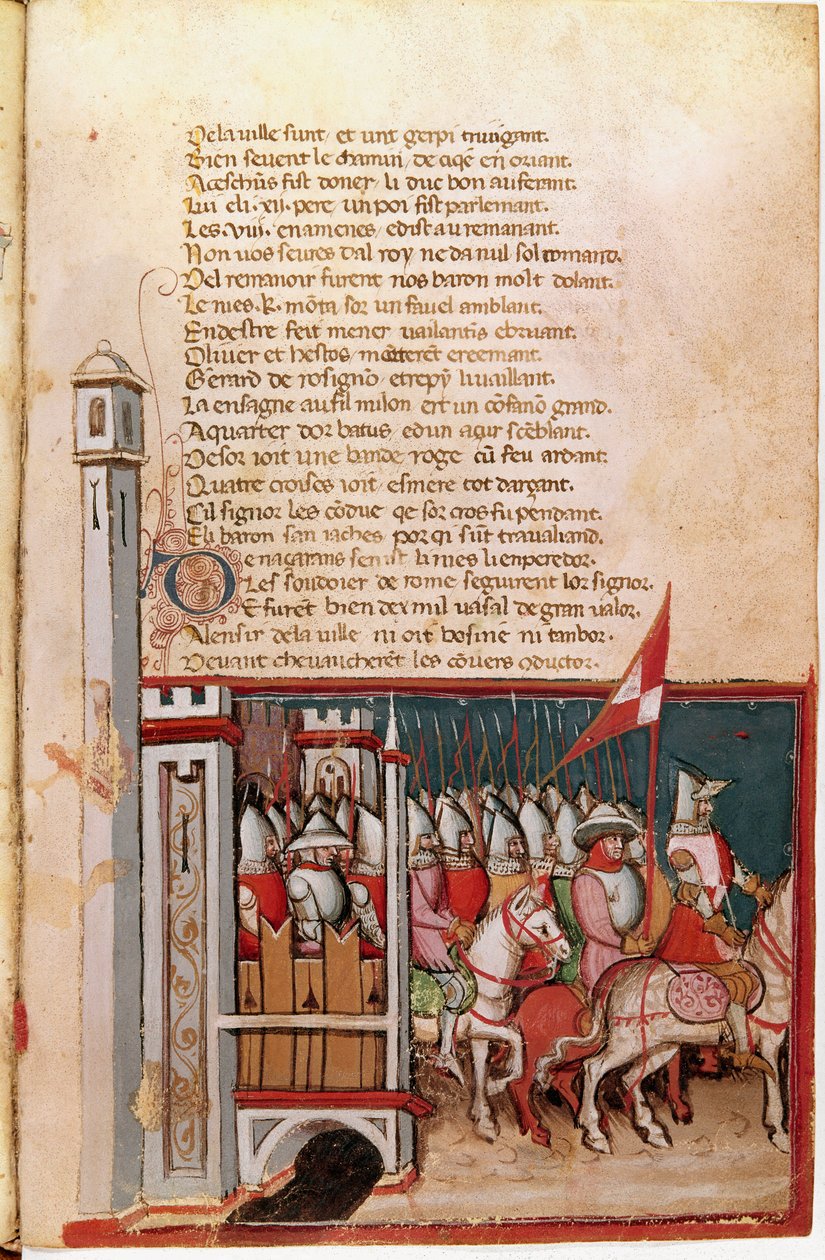 De la ville sunt, et unt gerpi truuigant.
Bien seuent le chamin, de ciqe en oriant.
Aceschũs fist doner, li duc bon auferant.
Lui e li .xii. pere, un poi fist parlemant.
Les .viii. en amenes, e dist au remanant.
Non uos seures dal roy ne da nul sol comand.
Del remanoir furent nos baron molt dolant.
Le nies .K. mõta sor un fauel amblant.
En destre feit mener uailantif e bruant.
Oliuier et hestos, mõtterẽt ereemant.
Gerard de rosignõ, et repỹ li uaillant.
La ensagne au fil milon, ert un cõfanõ grand.
A quarter dor batus, ed un açur scẽblant.
Desor ioit une bande roge cũ feu ardant.
Quatre croises ioit, esmere tot dargant.
Cil signor les cõdue qe sor cros fu pendant.
E li baron san iaches, por qi sũt trauailiand.
De naçarans sen ist li nies li enperedor.
Les soudoier de rome seguirent lor signor.
E furẽt bien dex mil uasal de gran ualor.
A lensir de la ville ni oit bosine ni tanbor.
Deuant cheuaucherẽt les cõuers 9ductor.